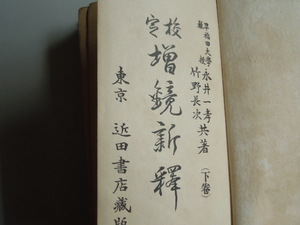 早稲田大学教授 永井一孝共著
竹野長次
（下巻）
校定
増鏡新釋
東京 近田書店藏版